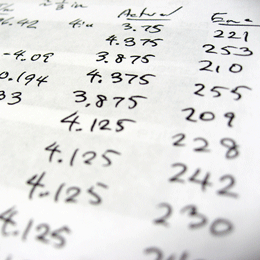 Actual
4.11 3.75 221
4.375 253
-4.09 3.875 210
0.194 4.375 255
33 3.875 209
4.125 228
4.125 242
4.125 230
4.125